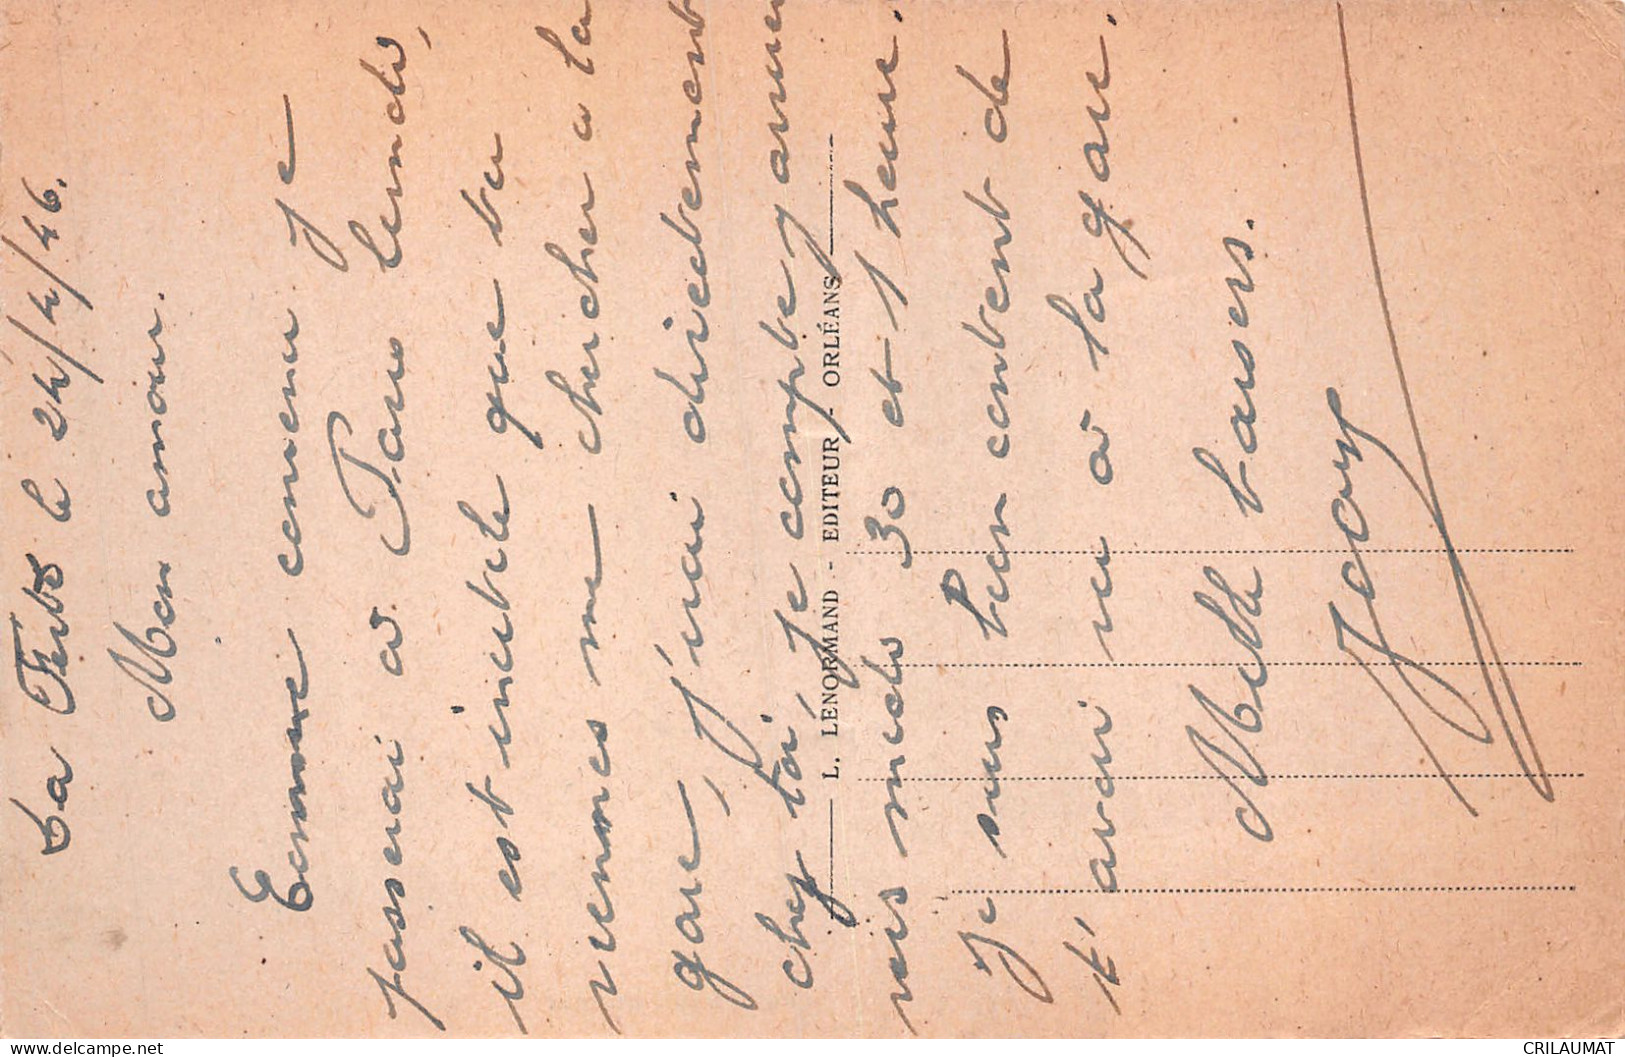 La Ferté le 24/4/46.
Mon amour.
Comme convenu je
passerai à Paris lundi,
il est inutile que tu
viennes me chercher à la
gare, j'irai directement
chez toi, je compte y arriver
vers midi 30 et 1 heure.
Je suis bien content de
t'avoir vu à la gare.
Mille baisers.
L. LENORMAND - EDITEUR - ORLÉANS
CRILAUMAT